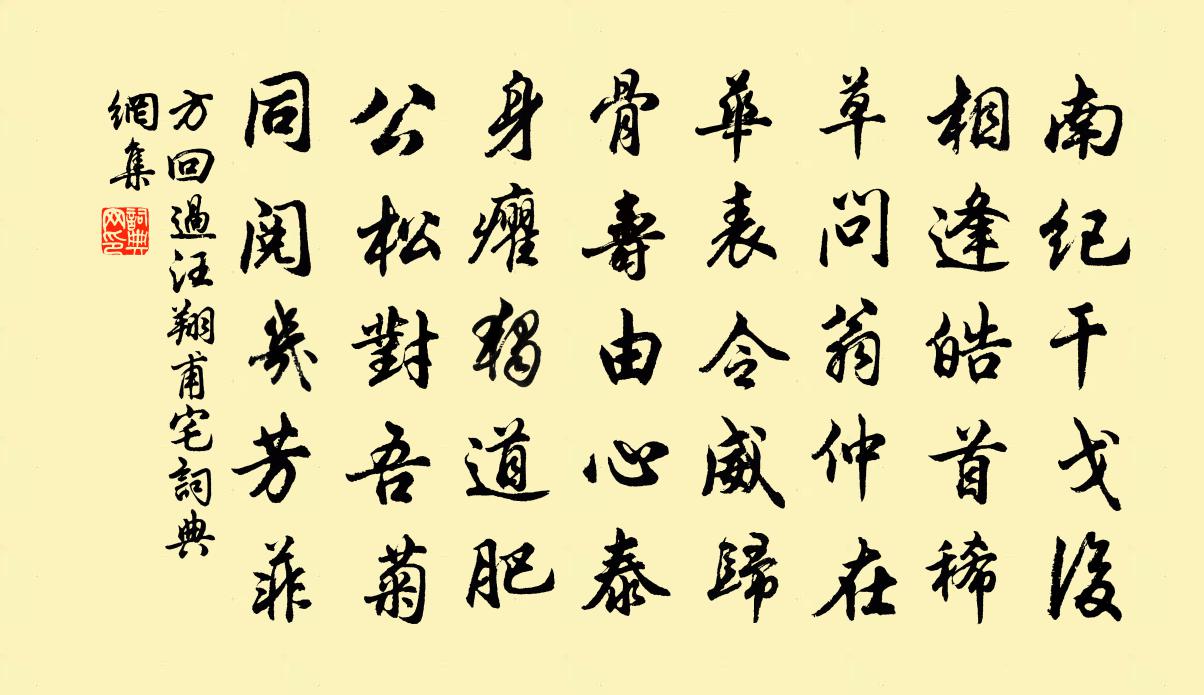 南紀干戈後
相逢皓首稀
草問翁仲在
華表令威歸
骨壽由心泰
身癯獨道肥
公松對吾菊
同閱幾芳菲
方回過汪翔甫宅詞典
網集
詞典
网印